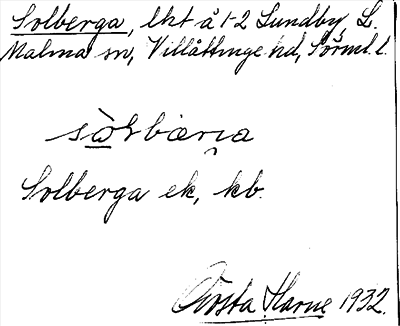 Solberga, lht å 1-2 Sundby, L.
Malma sn, Villåttinge hd, Sörml. l.
Solberga ek, kb.
Gösta Harne 1932.